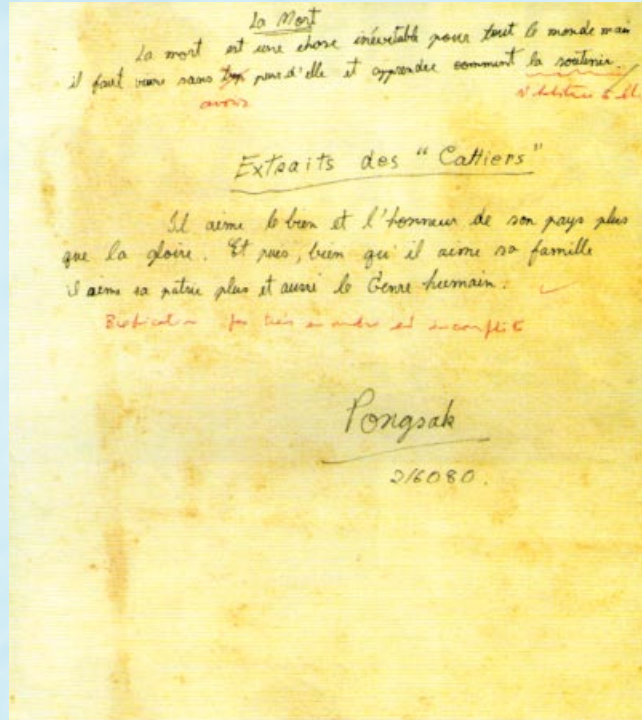 La Mort
La mort est une chose inévitable pour tout le monde mais
il faut vivre sans trop peur d'elle et apprendre comment la soutenir.
avoir
s'habituer à elle
Extraits des "Cahiers"
Il aime le bien et l'honneur de son pays plus
que la gloire. Et puis, bien qu'il aime sa famille
il aime sa patrie plus et aussi le Genre humain.
pas très en ordre et incomplète
Pongsak
216080.